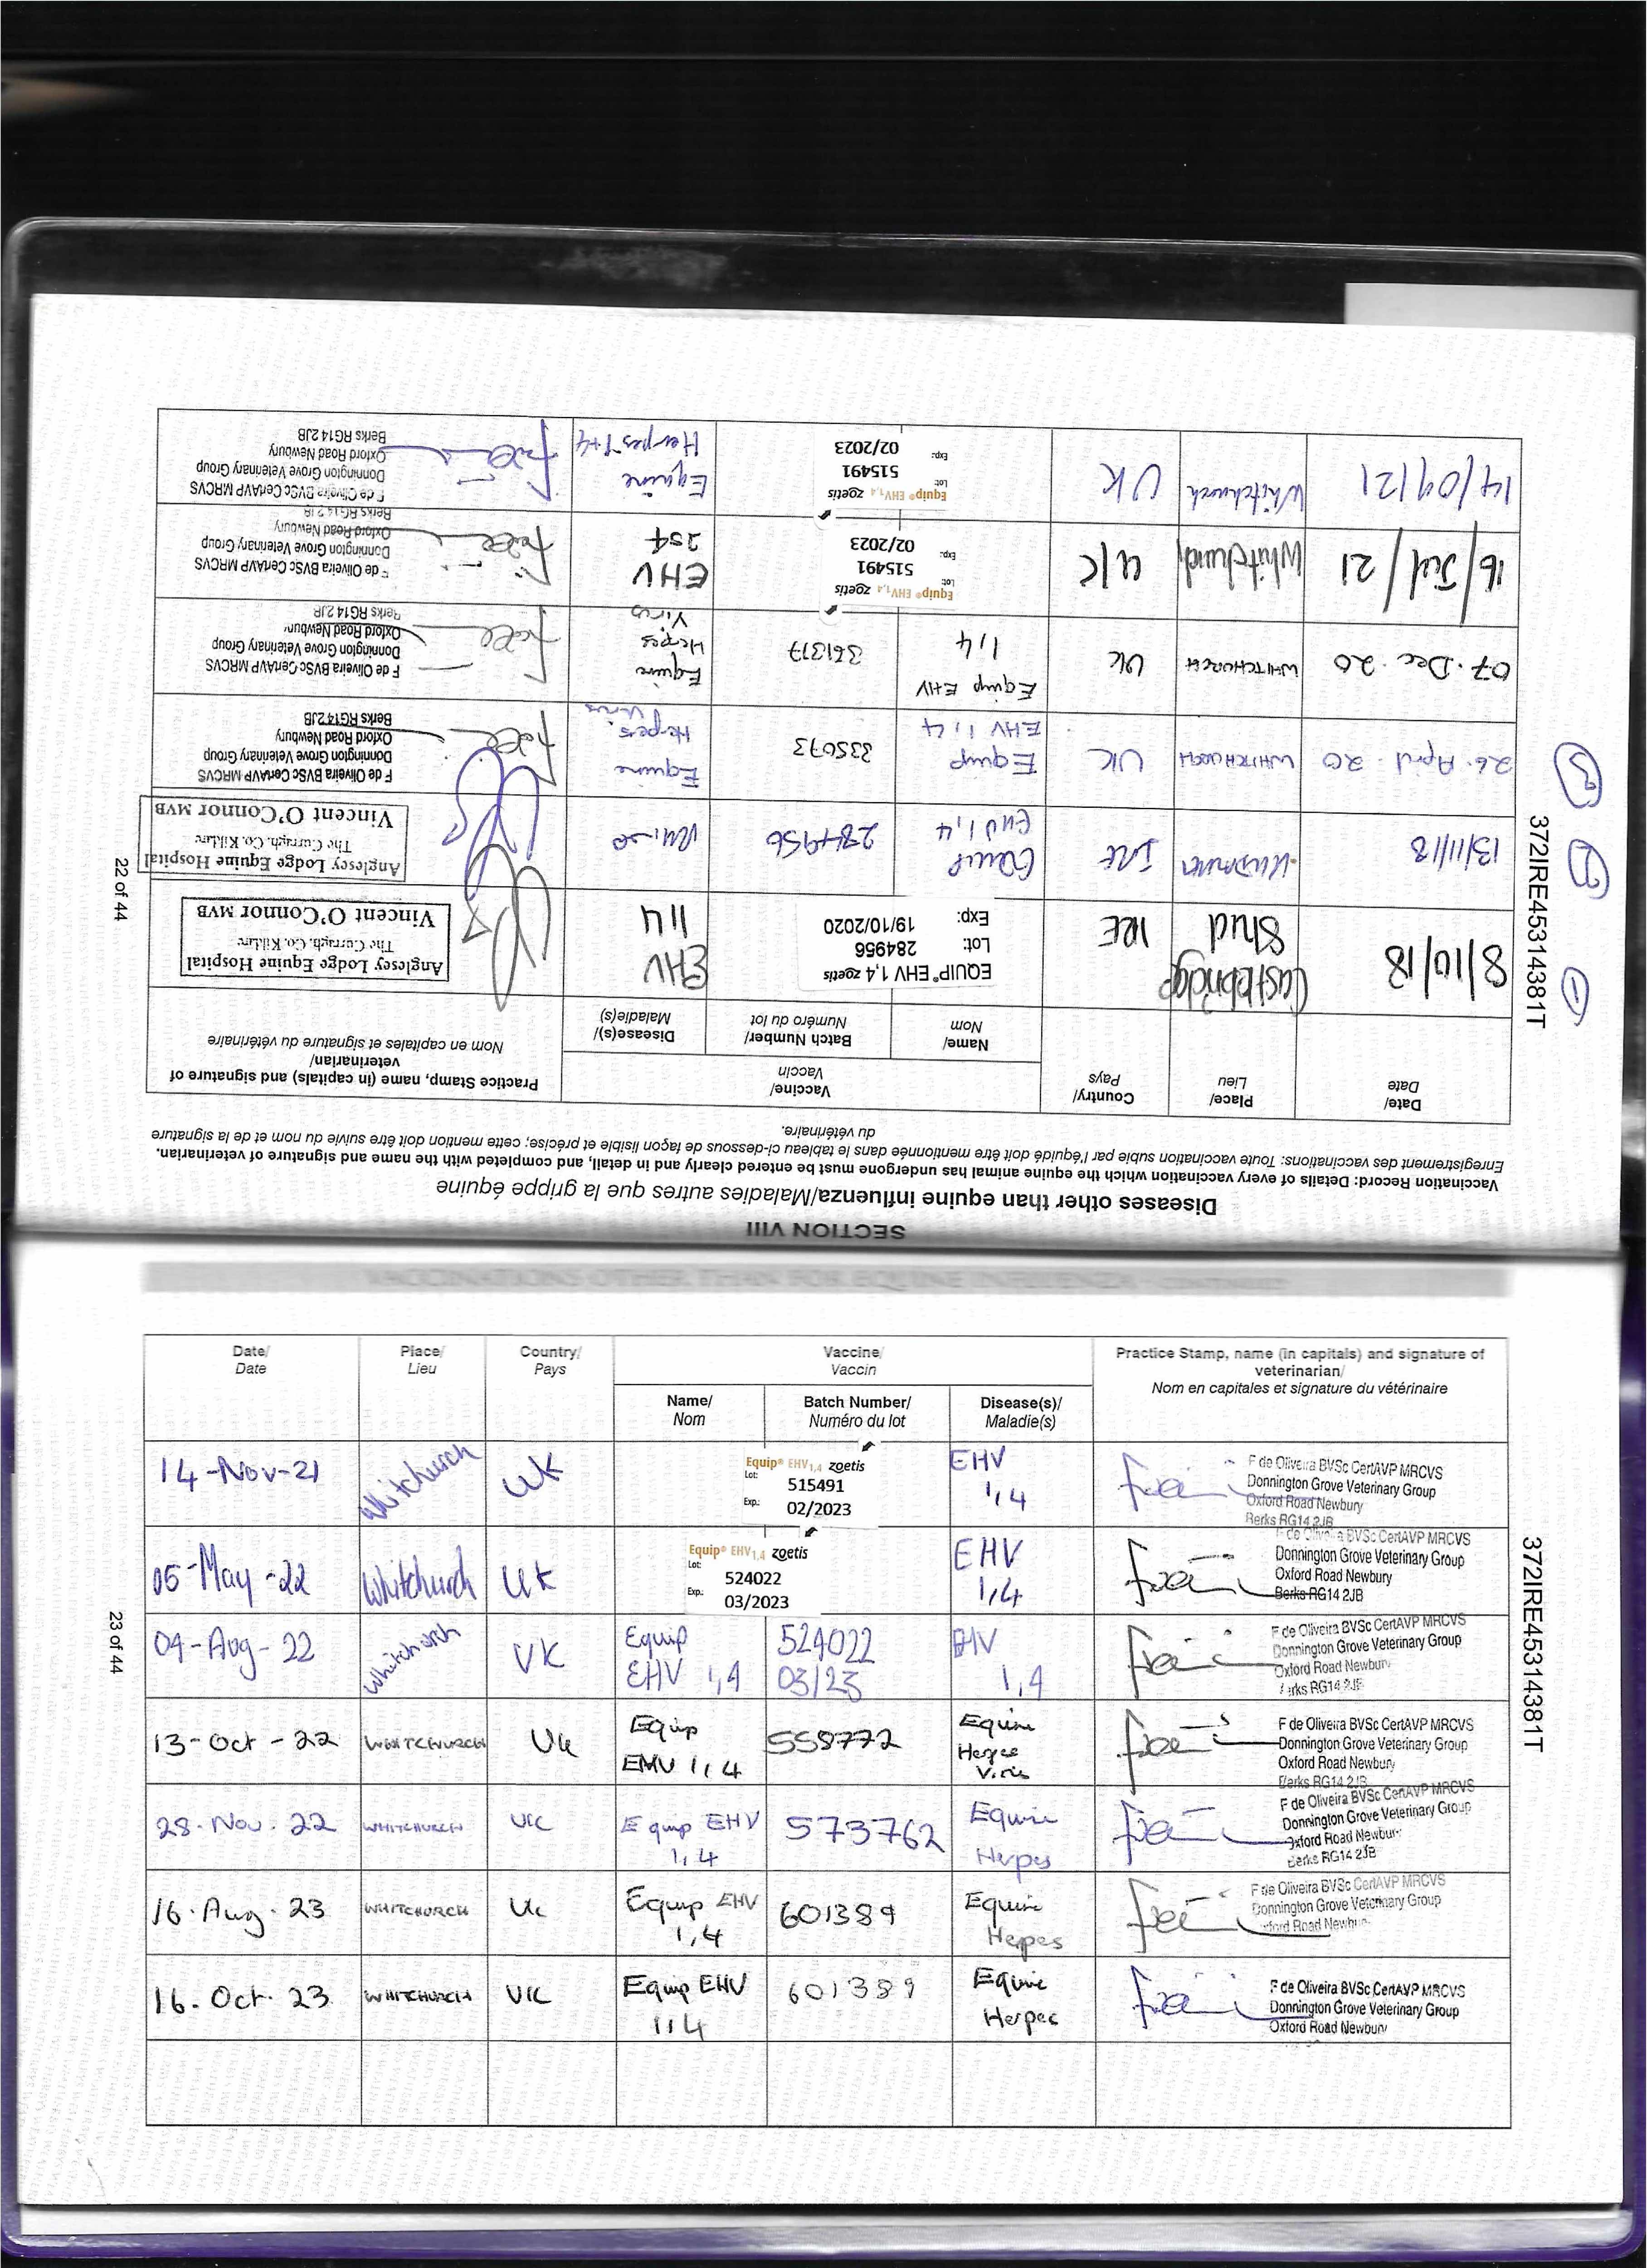 SECTION VIII
Diseases other than equine influenza/Maladies autres que la grippe équine
Vaccination Record: Details of every vaccination which the equine animal has undergone must be entered clearly and in detail, and completed with the name and signature of veterinarian.
Enregistrement des vaccinations: Toute vaccination subie par l'équidé doit être mentionnée dans le tableau ci-dessous de façon lisible et précise; cette mention doit être suivie du nom et de la signature
du vétérinaire.
Date/ Place/ Country/ Vaccine/ Practice Stamp, name (in capitals) and signature of
Date Lieu Pays Vaccin veterinarian/
Nom en capitales et signature du vétérinaire
Name/ Batch Number/ Disease(s)/
Nom Numéro du lot Maladie(s)
① 8/10/18 Castlebridge Stud IRE
EQUIP® EHV 1,4 zoetis
Lot: 284956
Exp: 19/10/2020
EHV
1,4
Anglesey Lodge Equine Hospital
The Curragh. Co. Kildare
Vincent O'Connor MVB
② 13/11/18 IRE
Equip
EHV 1,4
284956
Anglesey Lodge Equine Hospital
The Curragh. Co. Kildare
Vincent O'Connor MVB
③ 26. April. 20 WHITCHURCH UK
Equip
EHV 1,4
335073
Equine
Herpes
Virus
F de Oliveira BVSc CertAVP MRCVS
Donnington Grove Veterinary Group
Oxford Road Newbury
Berks RG14 2JB
07. Dec. 20 WHITCHURCH UK
Equip EHV
1,4
361377
Equine
Herpes
Virus
F de Oliveira BVSc CertAVP MRCVS
Donnington Grove Veterinary Group
Oxford Road Newbury
Berks RG14 2JB
16/Jul/21 Whitchurch UK
Equip® EHV1,4 zoetis
Lot: 515491
Exp: 02/2023
EHV
F de Oliveira BVSc CertAVP MRCVS
Donnington Grove Veterinary Group
Oxford Road Newbury
Berks RG14 2JB
14/09/21 Whitchurch UK
Equip® EHV1,4 zoetis
Lot: 515491
Exp: 02/2023
Equine
Herpes 1+4
F de Oliveira BVSc CertAVP MRCVS
Donnington Grove Veterinary Group
Oxford Road Newbury
Berks RG14 2JB
22 of 44
372IRE45314381T
VACCINATIONS OTHER THAN FOR EQUINE INFLUENZA - CONTINUED
Date/ Place/ Country/ Vaccine/ Practice Stamp, name (in capitals) and signature of
Date Lieu Pays Vaccin veterinarian/
Nom en capitales et signature du vétérinaire
Name/ Batch Number/ Disease(s)/
Nom Numéro du lot Maladie(s)
14-Nov-21 Whitchurch UK
Equip® EHV1,4 zoetis
Lot: 515491
Exp.: 02/2023
EHV
1,4
F de Oliveira BVSc CertAVP MRCVS
Donnington Grove Veterinary Group
Oxford Road Newbury
Berks RG14 2JB
05-May-22 Whitchurch UK
Equip® EHV1,4 zoetis
Lot: 524022
Exp.: 03/2023
EHV
1,4
F de Oliveira BVSc CertAVP MRCVS
Donnington Grove Veterinary Group
Oxford Road Newbury
Berks RG14 2JB
04-Aug-22 Whitchurch UK
Equip
EHV 1,4
524022
03/23
EHV
1,4
F de Oliveira BVSc CertAVP MRCVS
Donnington Grove Veterinary Group
Oxford Road Newbury
Berks RG14 2JB
13-Oct-22 WHITCHURCH UK
Equip
EHV 1,4
558772
Equine
Herpes
Virus
F de Oliveira BVSc CertAVP MRCVS
Donnington Grove Veterinary Group
Oxford Road Newbury
Berks RG14 2JB
28. Nov. 22 WHITCHURCH UK
Equip EHV
1,4
573762
Equine
Herpes
F de Oliveira BVSc CertAVP MRCVS
Donnington Grove Veterinary Group
Oxford Road Newbury
Berks RG14 2JB
16. Aug. 23 WHITCHURCH UK
Equip EHV
1,4
601389
Equine
Herpes
F de Oliveira BVSc CertAVP MRCVS
Donnington Grove Veterinary Group
Oxford Road Newbury
16. Oct. 23 WHITCHURCH UK
Equip EHV
1,4
601389
Equine
Herpes
F de Oliveira BVSc CertAVP MRCVS
Donnington Grove Veterinary Group
Oxford Road Newbury
23 of 44
372IRE45314381T